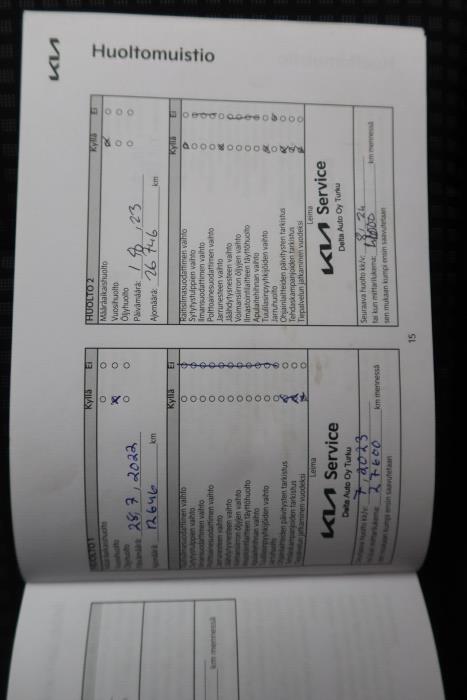 KIA
Huoltomuistio
HUOLTO 1
Kyllä Ei
Määräaikaishuolto
Vuosihuolto
Öljyhuolto
Päivämäärä: 28,7, 2022
Ajomäärä: 12646 km
Kyllä Ei
Raitisilmasuodattimen vaihto
Sytytystulppien vaihto
Ilmansuodattimen vaihto
Polttoainesuodattimen vaihto
Jarrunesteen vaihto
Jäähdytysnesteen vaihto
Voimansiirron öljyjen vaihto
Ilmastointilaitteen täyttöhuolto
Apulaitehihnan vaihto
Tuulilasinpyyhkijöiden vaihto
Jarruhuolto
Ohjainlaitteiden päivitysten tarkistus
Tehdaskampanjoiden tarkistus
Tiepalvelun jatkaminen vuodeksi
Leima
KIA Service
Delta Auto Oy Turku
Seuraava huolto kk/v: 7, 2023
tai kun mittarilukema: 27600 km mennessä
sen mukaan kumpi ensin saavutetaan
HUOLTO 2
Kyllä Ei
Määräaikaishuolto
Vuosihuolto
Öljyhuolto
Päivämäärä: , 23
Ajomäärä: 26 746 km
Kyllä Ei
Raitisilmasuodattimen vaihto
Sytytystulppien vaihto
Ilmansuodattimen vaihto
Polttoainesuodattimen vaihto
Jarrunesteen vaihto
Jäähdytysnesteen vaihto
Voimansiirron öljyjen vaihto
Ilmastointilaitteen täyttöhuolto
Apulaitehihnan vaihto
Tuulilasinpyyhkijöiden vaihto
Jarruhuolto
Ohjainlaitteiden päivitysten tarkistus
Tehdaskampanjoiden tarkistus
Tiepalvelun jatkaminen vuodeksi
Leima
KIA Service
Delta Auto Oy Turku
Seuraava huolto kk/v: 8, 24
tai kun mittarilukema: km mennessä
sen mukaan kumpi ensin saavutetaan
15
km
km mennessä